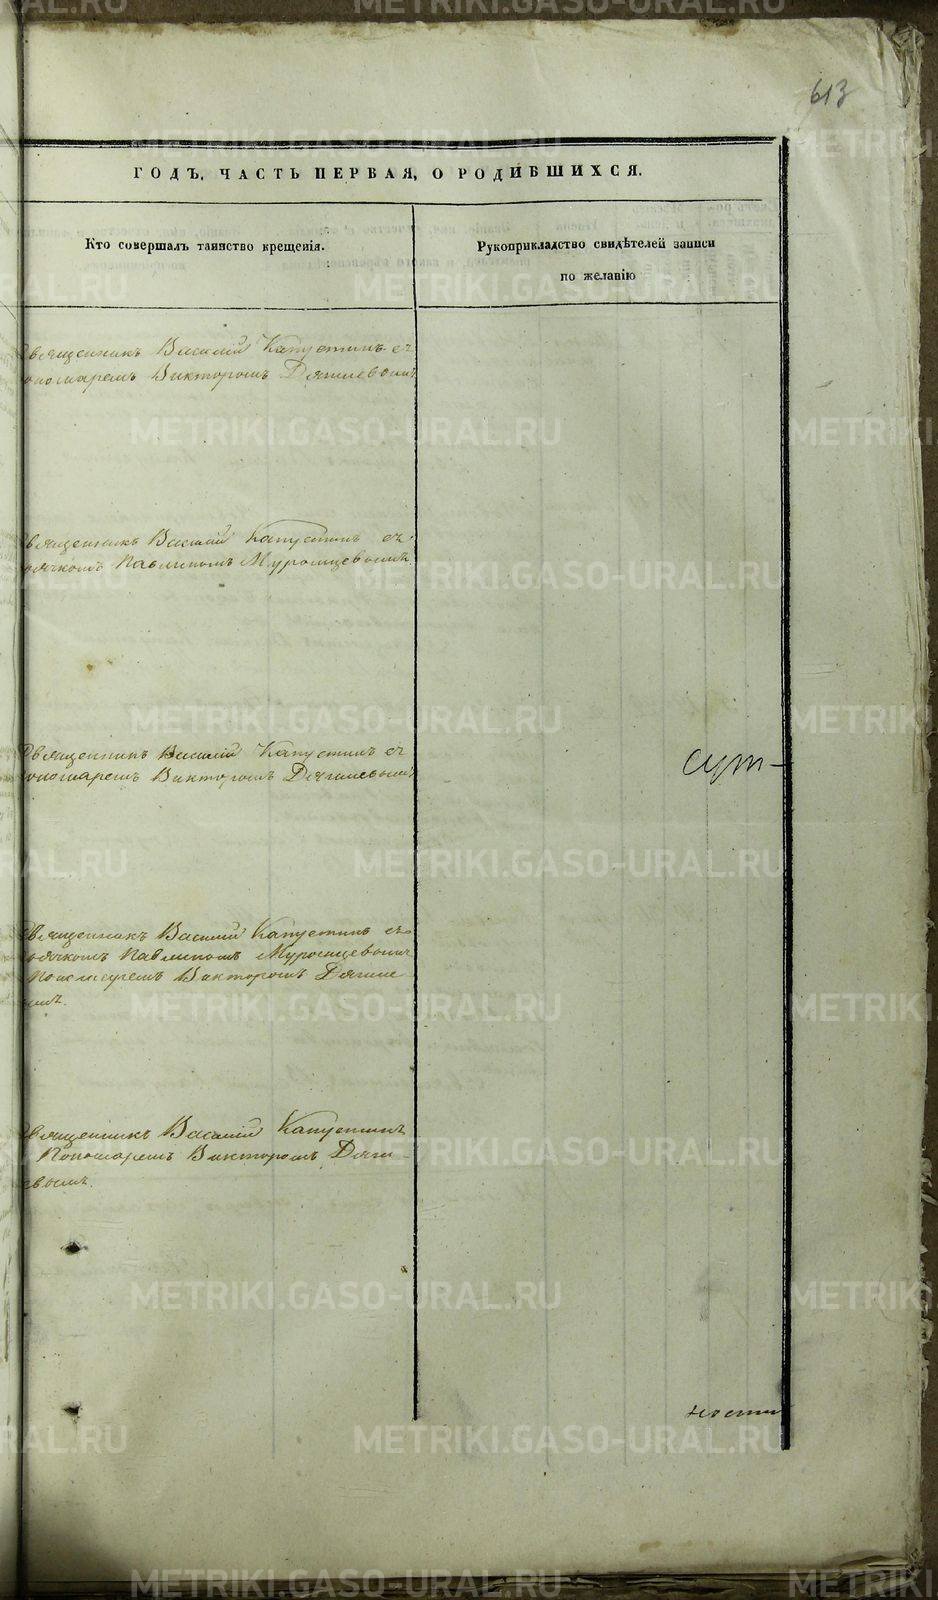 613
ГОДЪ, ЧАСТЬ ПЕРВАЯ, О РОДИВШИХСЯ.
Кто совершалъ таинство крещенія.
Рукоприкладство свидѣтелей записи
по желанію
Священникъ Василій Капустинъ съ
пономаремъ Викторомъ Дягилевымъ
Священникъ Василій Капустинъ съ
дьячкомъ Павлиномъ Муромцевымъ.
Священникъ Василій Капустинъ съ
пономаремъ Викторомъ Дягилевымъ
Священникъ Василій Капустинъ съ
дьячкомъ Павлиномъ Муромцевымъ
Пономаремъ Викторомъ Дягиле-
вымъ.
Священникъ Василій Капустинъ
Пономаремъ Викторомъ Дяги-
левымъ.
ности
METRIKI.GASO-URAL.RU